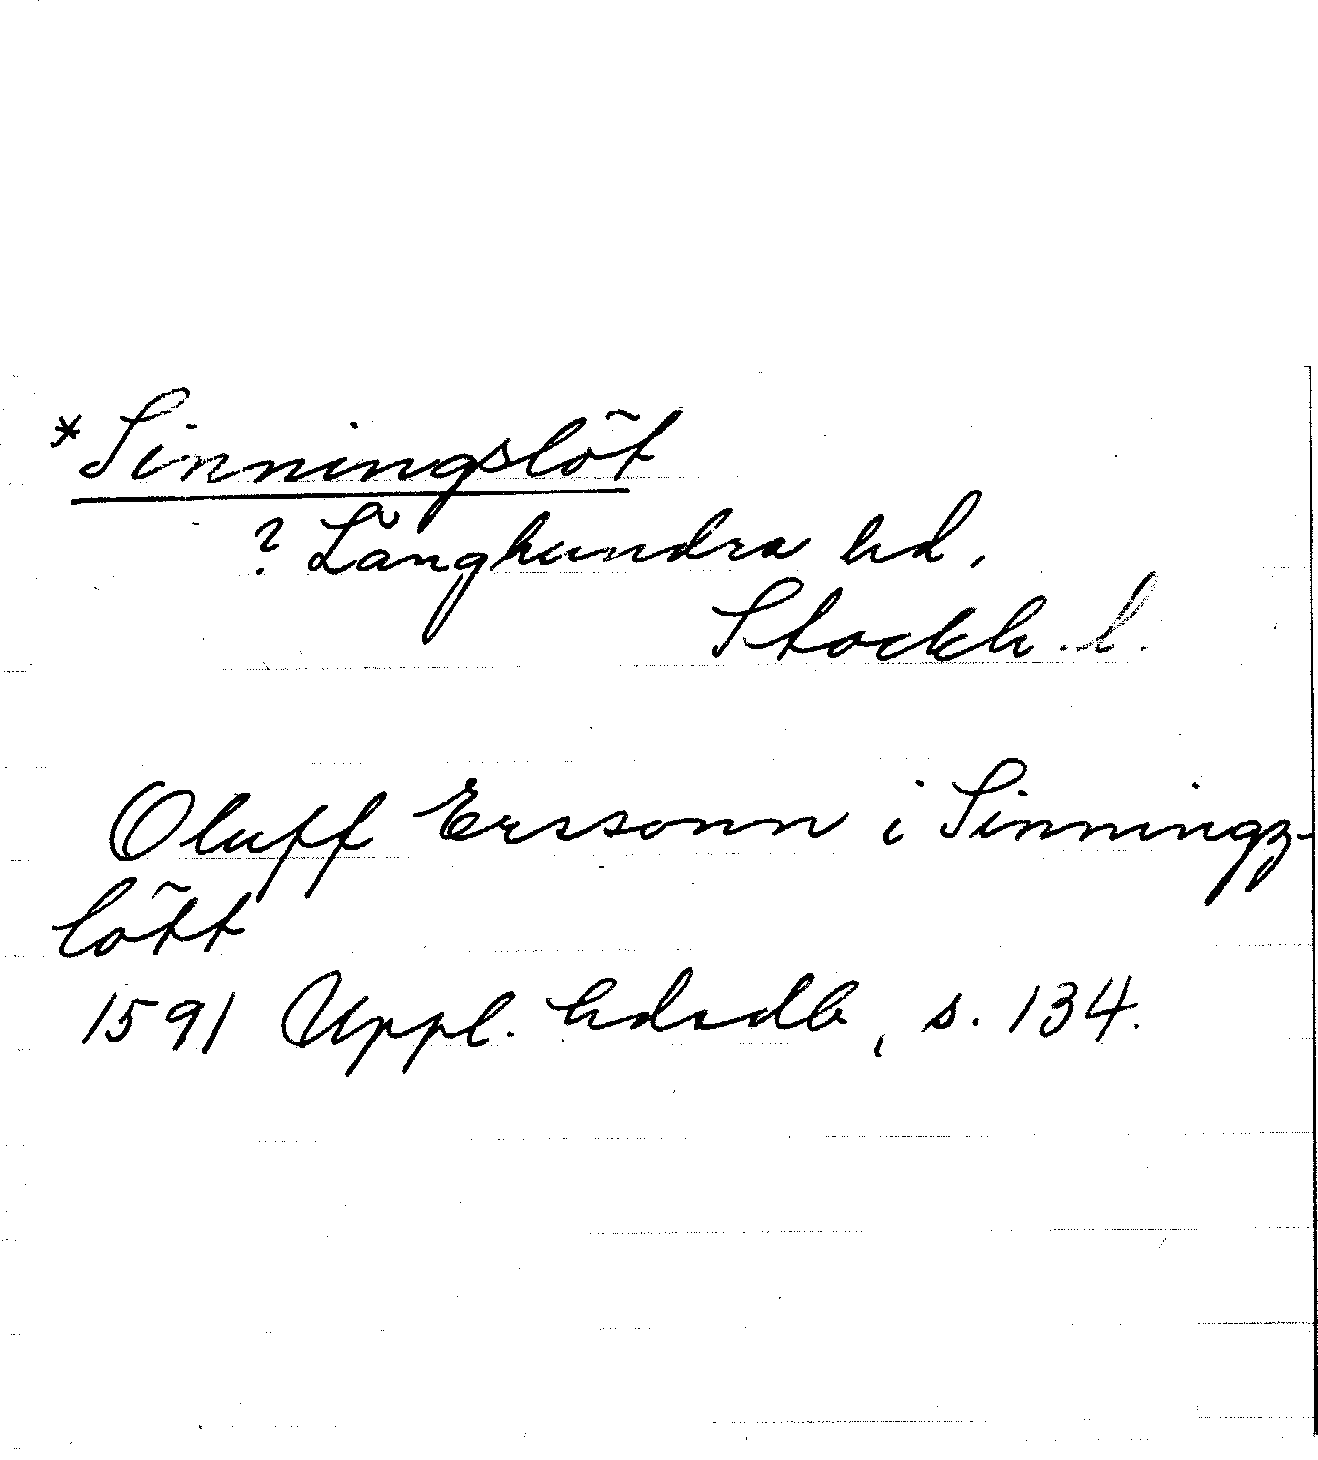 *Sinningslöt
? Långhundra hd.
Stockh. l.
Oluff Erssonn i Sinningz-
lött
1591 Uppl. hdsdb, s. 134.